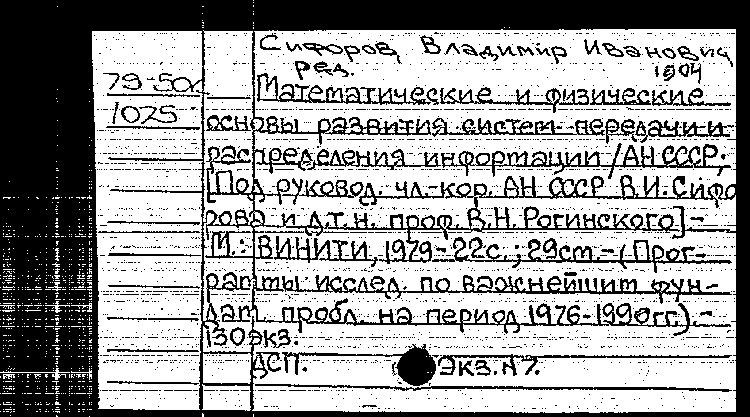 Сифоров, Владимир Иванович
ред. 1904
79-50
1025
Математические и физические
основы развития систем передачи и
распределения информации / АН СССР;
[Под руковод. чл.-кор. АН СССР В.И. Сифо
рова и д.т.н. проф. В.Н. Рогинского] -
М.: ВИНИТИ, 1979 - 22с.; 29см. - (Прог-
раммы исслед. по важнейшим фун-
дам. пробл. на период 1976-1990гг.). -
130экз.
ДСП. Экз. N 7.